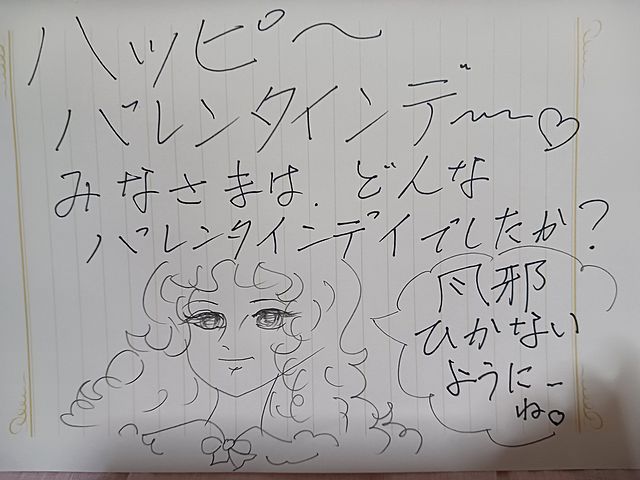 ハッピ〜
バレンタインデ〜〜♡
みなさまは、どんな
バレンタインデイでしたか?
風邪
ひかない
ように〜
ね♡